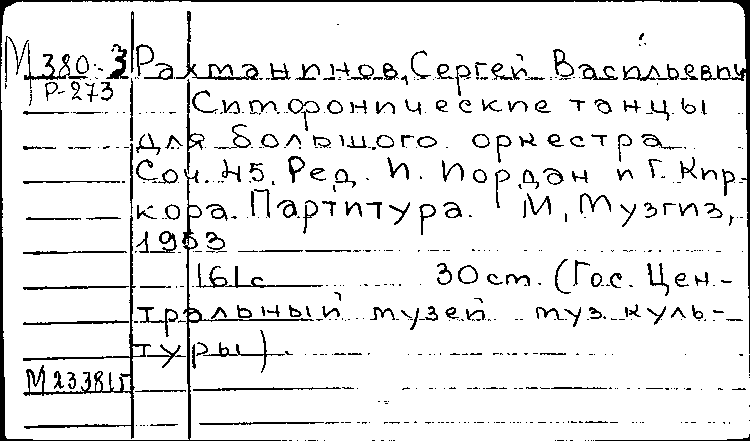 М 380-3 Рахманинов, Сергей Васильевич
Р-273
Симфонические танцы
для большого оркестра
Соч. 45. Ред. И. Иордан и Г. Кир-
кора. Партитура. М, Музгиз,
1953
161 с 30 см. (Гос. Цен-
тральный музей муз. куль-
туры).
М 23381